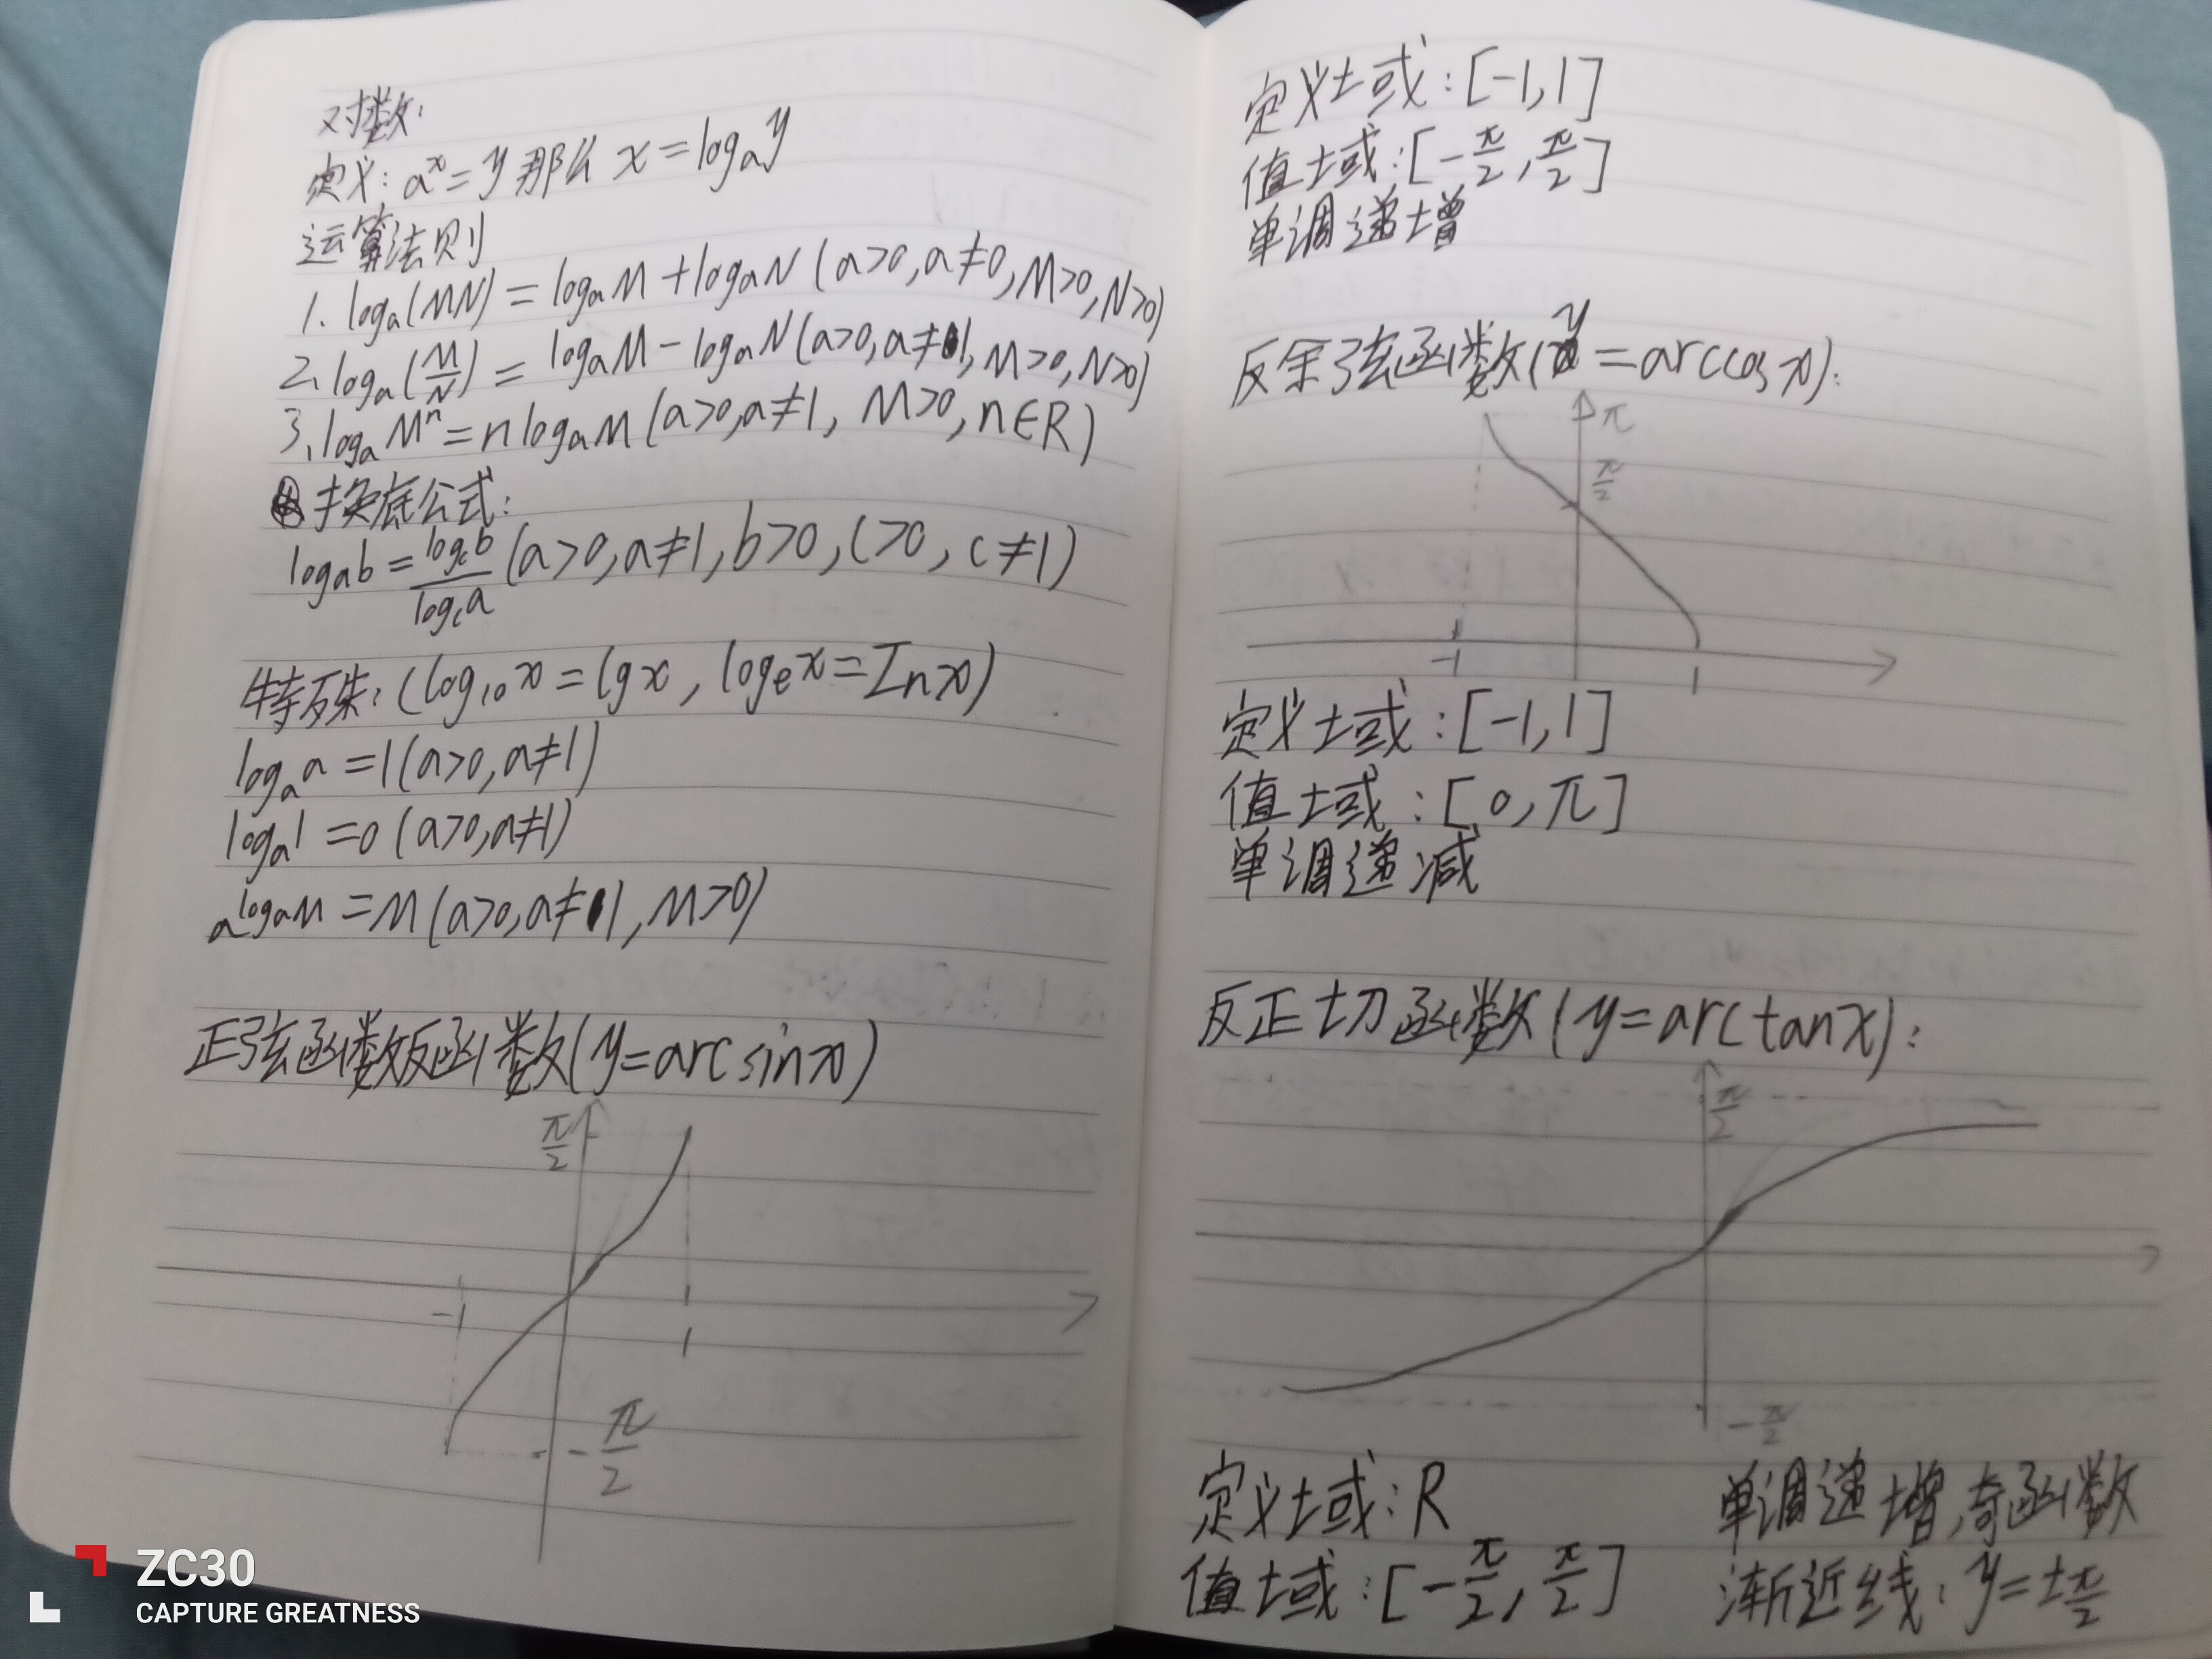 对数:
定义: aˣ=y 那么 x=logₐy
运算法则
1. logₐ(MN) = logₐM+logₐN (a>0,a≠0,M>0,N>0)
2. logₐ(M/N) = logₐM-logₐN(a>0,a≠1,M>0,N>0)
3. logₐMⁿ=nlogₐM(a>0,a≠1, M>0,n∈R)
换底公式:
logₐb=log_c b/log_c a (a>0,a≠1,b>0,c>0,c≠1)
特殊:(log₁₀x=lgx, logₑx=Inx)
logₐa=1(a>0,a≠1)
logₐ1=0(a>0,a≠1)
a^logₐM=M(a>0,a≠1,M>0)
正弦函数反函数(y=arcsinx)
π/2
-1
1
-π/2
定义域:[-1,1]
值域:[-π/2,π/2]
单调递增
反余弦函数(y=arccosx):
π
π/2
-1
1
定义域:[-1,1]
值域:[0,π]
单调递减
反正切函数(y=arctanx):
π/2
-π/2
定义域:R
单调递增,奇函数
值域:[-π/2,π/2]
渐近线:y=±π/2
ZC30
CAPTURE GREATNESS